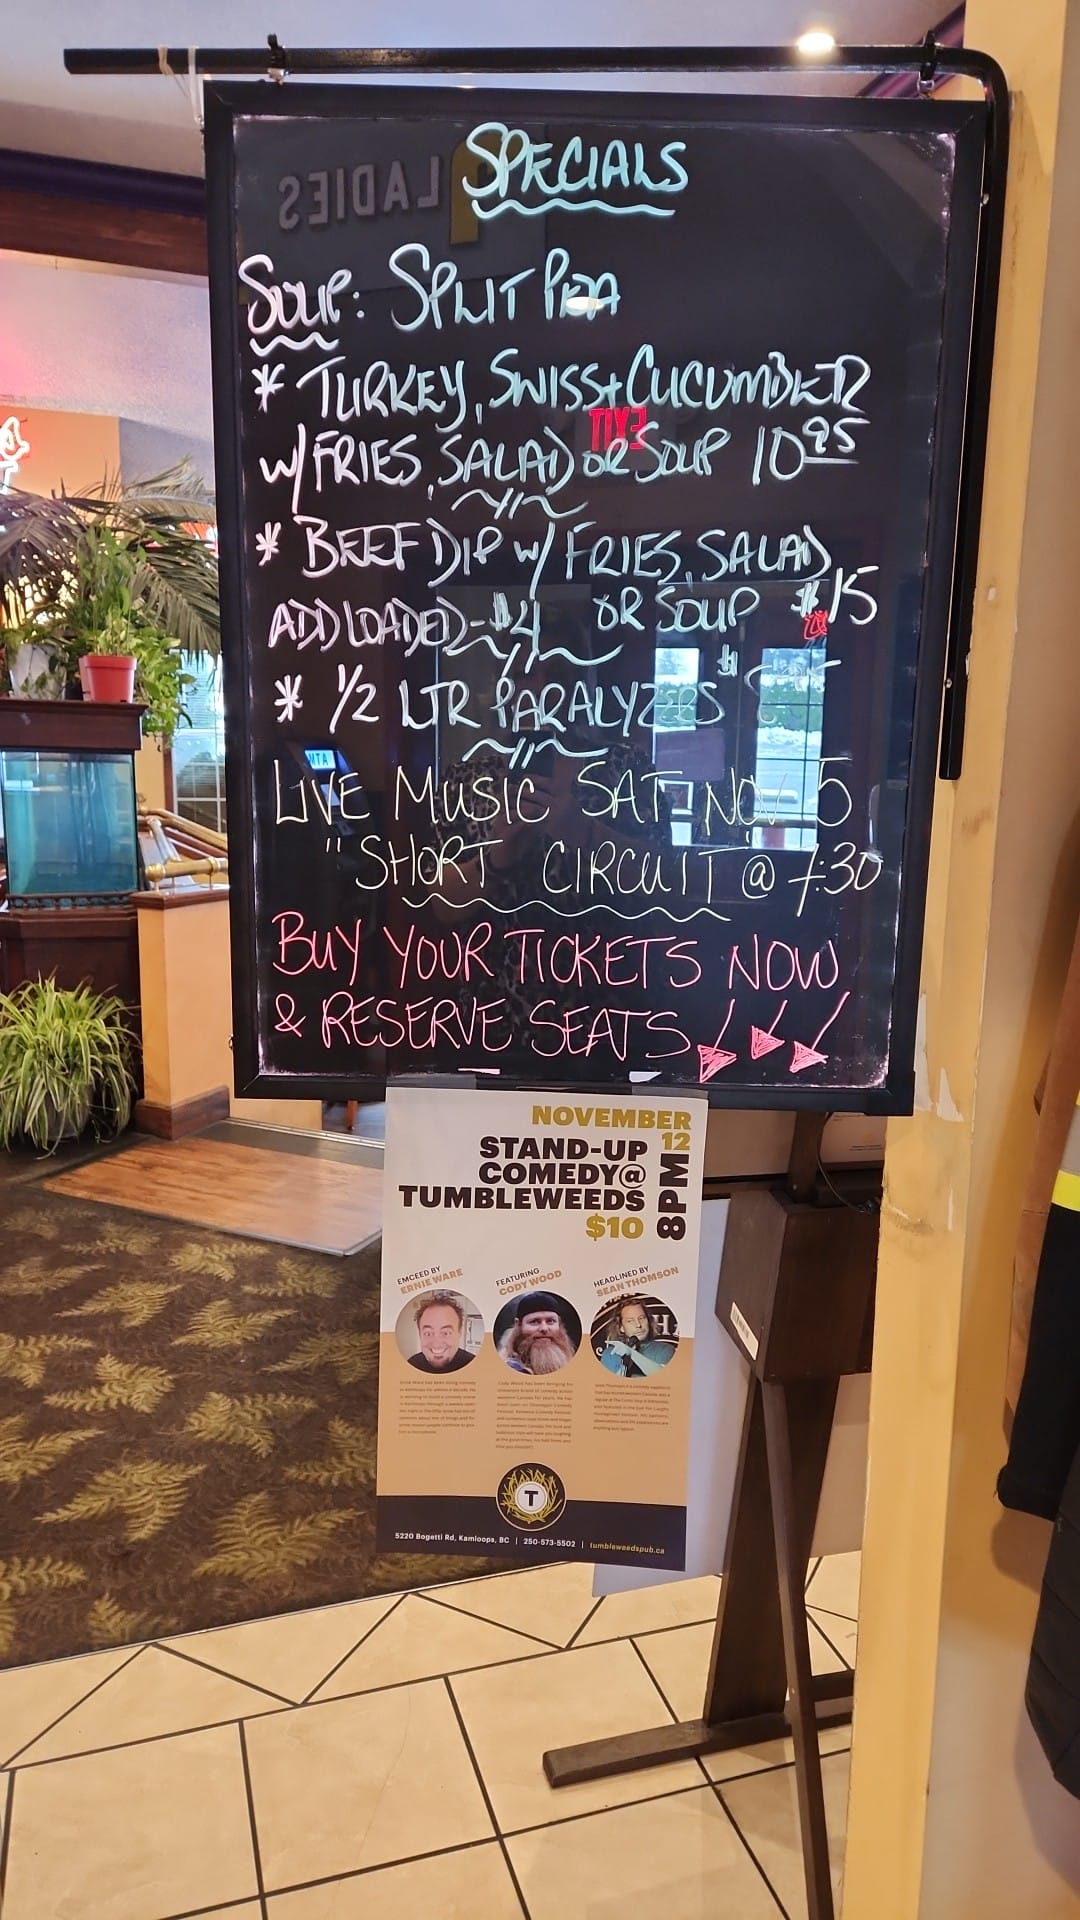 SPECIALS
LADIES
SOUP: SPLIT PEA
* TURKEY, SWISS + CUCUMBER
EXIT
W/ FRIES, SALAD OR SOUP 10 95
* BEEF DIP W/ FRIES, SALAD
ADD LOADED - $4 OR SOUP $15
* 1/2 LTR PARALYZERS $
MTA
LIVE MUSIC SAT NOV 5
"SHORT CIRCUIT @ 7:30
BUY YOUR TICKETS NOW
& RESERVE SEATS
NOVEMBER
12
8PM
STAND-UP
COMEDY@
TUMBLEWEEDS
$10
EMCEED BY
ERNIE WARE
FEATURING
CODY WOOD
HEADLINED BY
SEAN THOMSON
T
5220 Bogetti Rd, Kamloops, BC | 250-573-5502 | tumbleweedspub.ca